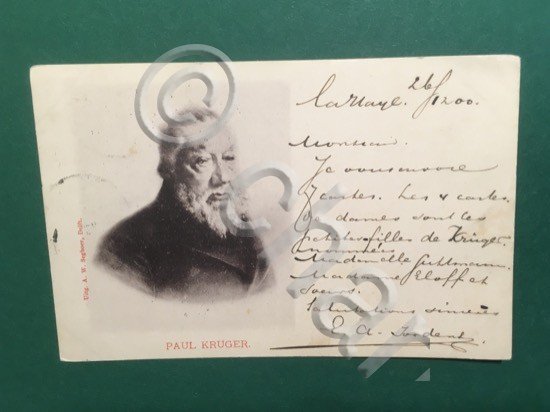 La Haye. 26/12 00.
Monsieur.
Je vous envoie
7 cartes. Les 4 cartes
de dames sont les
petites filles de Krüger
nommées
Mademoiselle
Madame Eloff et
soeurs.
Salutations sincères
E. A.
Uitg. A. W. Segboer, Delft.
PAUL KRUGER.
©